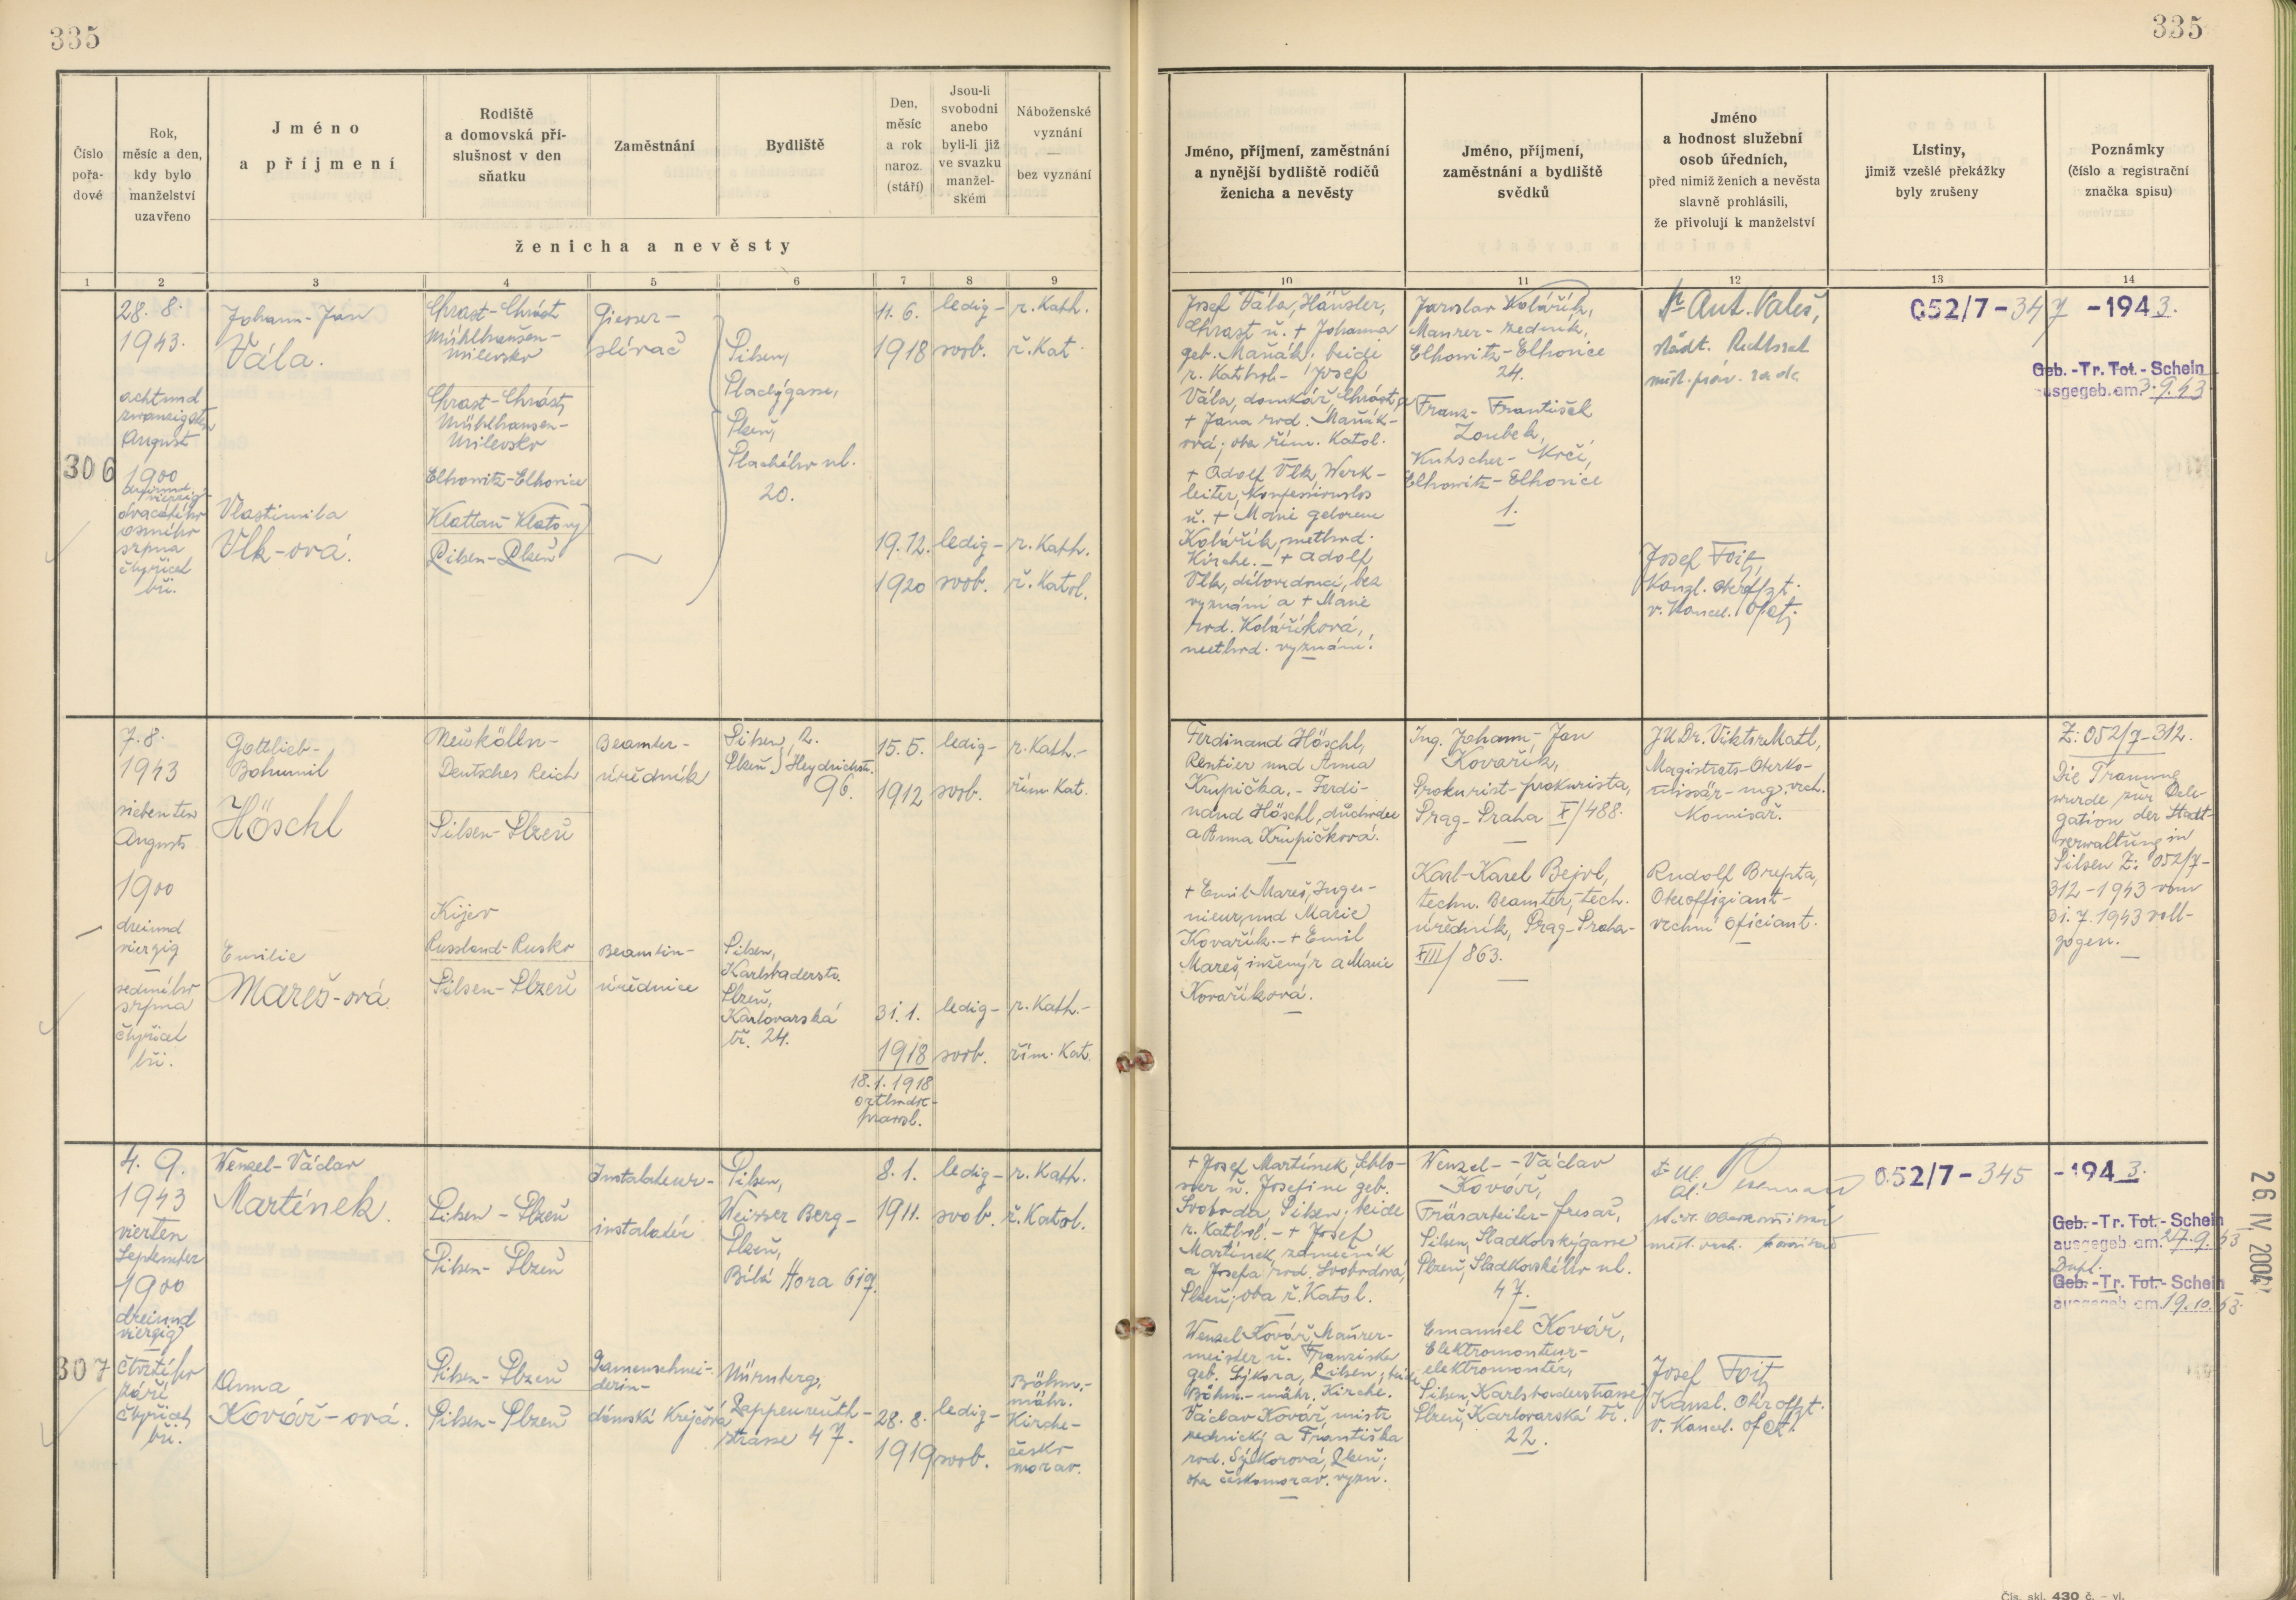 335
335
Číslo
pořa-
dové
Rok,
měsíc a den,
kdy bylo
manželství
uzavřeno
Jméno
a příjmení
Rodiště
a domovská pří-
slušnost v den
sňatku
Zaměstnání
Bydliště
Den,
měsíc
a rok
naroz.
(stáří)
Jsou-li
svobodni
anebo
byli-li již
ve svazku
manžel-
ském
Náboženské
vyznání
—
bez vyznání
ženicha a nevěsty
Jméno, příjmení, zaměstnání
a nynější bydliště rodičů
ženicha a nevěsty
Jméno, příjmení,
zaměstnání a bydliště
svědků
Jméno
a hodnost služební
osob úředních,
před nimiž ženich a nevěsta
slavně prohlásili,
že přivolují k manželství
Listiny,
jimiž vzešlé překážky
byly zrušeny
Poznámky
(číslo a registrační
značka spisu)
1 2 3 4 5 6 7 8 9 10 11 12 13 14
306
28. 8.
1943.
achtund
zwanzigsten
August
1900
dreiund
vierzig-
dvacátého
osmého
srpna
čtyřicet
tři.
Johann-Jan
Vála.
Vlastimila
Vlk-ová.
Chrast-Chrást
Mühlhausen-
Milevsko
Chrast-Chrást,
Mühlhausen-
Milevsko
Elhowitz-Elhovice
Klattau-Klatovy
Pilsen-Plzeň
Giesser-
slévač
Pilsen,
Plachýgasse,
Plzeň,
Plachého ul.
20.
11. 6.
1918
19. 12.
1920
ledig-
svob.
ledig-
svob.
r. Kath.
ř. Kat.
r. Kath.
ř. Katol.
Josef Vála, Häusler,
Chrast u. + Johanna
geb. Maňák. beide
r. Kathol- Josef
Vála, domkář, Chrást, a
+ Jana rod. Maňák-
ová; oba řím. Katol.
+ Adolf Vlk, Werk-
leiter, Konfessionslos
u. + Marie geborene
Kolářík, method.
Kirche. - + Adolf
Vlk, dílovedoucí, bez
vyznání a + Marie
rod. Koláříková,
method. vyznání.
Jaroslav Kolářík,
Maurer-zedník,
Elhowitz-Elhovice
24.
Franz-František
Zoubek,
Kutscher-Kočí,
Elhowitz-Elhovice
1.
Dr Ant. Valeš,
städt. Rechtsrat
měst. práv. rada
Josef Foit,
Kanzl. oberoffzt.
v. Kancel. ofct.
052/7-347 -1943.
Geb.-Tr. Tot.-Schein
ausgegeb. am 3.9.43
7. 8.
1943
siebenten
Augusts
1900
dreiund
vierzig
sedmého
srpna
čtyřicet
tři.
Gottlieb-
Bohumil
Höschl
Emilie
Mareš-ová
Neukölln-
Deutsches Reich
Pilsen-Plzeň
Kijev
Russland-Rusko
Pilsen-Plzeň
Beamter-
úředník
Beamtin-
úřednice
Pilsen, 2.
Plzeň, Heydrichstr.
96.
Pilsen,
Karlsbaderstr.
Plzeň,
Karlovarská
tř. 24.
15. 5.
1912
31. 1.
1918
18. 1. 1918
orthodox-
pravosl.
ledig-
svob.
ledig-
svob.
r. Kath.-
řím. Kat.
r. Kath.-
řím. Kat.
Ferdinand Höschl,
Rentier und Anna
Krupička. - Ferdi-
nand Höschl, důchodce
a Anna Krupičková.
+ Emil Mareš, Inge-
nieur, und Marie
Kovařík. - + Emil
Mareš, inženýr a Marie
Kovaříková.
Ing. Johann-Jan
Kovařík,
Prokurist-prokurista,
Prag-Praha X/488.
Karl-Karel Bejvl,
techn. Beamter, tech.
úředník, Prag-Praha-
XIII/863.
JUDr. Viktor Matl,
Magistrats-Oberko-
missär-mg. vrch.
Komisař.
Rudolf Brepta,
Oberoffiziant-
vrchní oficiant.
Z: 052/7-312.
Die Trauung
wurde zur Dele-
gation der Stadt-
verwaltung in
Pilsen Z: 052/7-
312-1943 vom
31. 7. 1943 voll-
zogen.
307
4. 9.
1943
vierten
September
1900
dreiund
vierzig
čtvrtého
září
čtyřicet
tři.
Wenzel-Václav
Martínek.
Anna
Kovář-ová.
Pilsen-Plzeň
Pilsen-Plzeň
Pilsen-Plzeň
Pilsen-Plzeň
Instalateur-
instalatér
Damenschnei-
derin-
dámská krejčová
Pilsen,
Weisser Berg-
Plzeň,
Bílá Hora 619.
Nürnberg,
Zappenreuth-
strasse 47.
8. 1.
1911.
28. 8.
1919
ledig-
svob.
ledig-
svob.
r. Kath.
ř. Katol.
Böhm.-
mähr.
Kirche-
česko
morav.
+ Josef Martínek, Schlo-
sser u. Josefine geb.
Svoboda, Pilsen; beide
r. Kathol. - + Josef
Martínek, zámečník
a Josefa rod. Svobodová,
Plzeň; oba ř. Katol.
Wenzel Kovář, Maurer-
meister u. Franziska
geb. Sýkora, Pilsen; beide
Böhm.-mähr. Kirche.
Václav Kovář, mistr
zednický a Františka
rod. Sýkorová, Plzeň;
oba českomorav. vyzn.
Wenzel-Václav
Kovář,
Fräsarbeiter-fresař,
Pilsen, Sladkovskýgasse
Plzeň, Sladkovského ul.
47.
Emanuel Kovář,
Elektromonteur-
elektromontér,
Pilsen, Karlsbaderstrasse
Plzeň, Karlovarská tř.
22.
Josef Foit,
Kanzl. Oberoffzt.
v. Kancel. ofct.
052/7-345 -1943.
Geb.-Tr. Tot.-Schein
ausgegeb. am 27.9.43
Dupl.
Geb.-Tr. Tot.-Schein
ausgegeb. am 19.10.43.
26. IV. 2004
Čís. skl. 430 č. – vl.